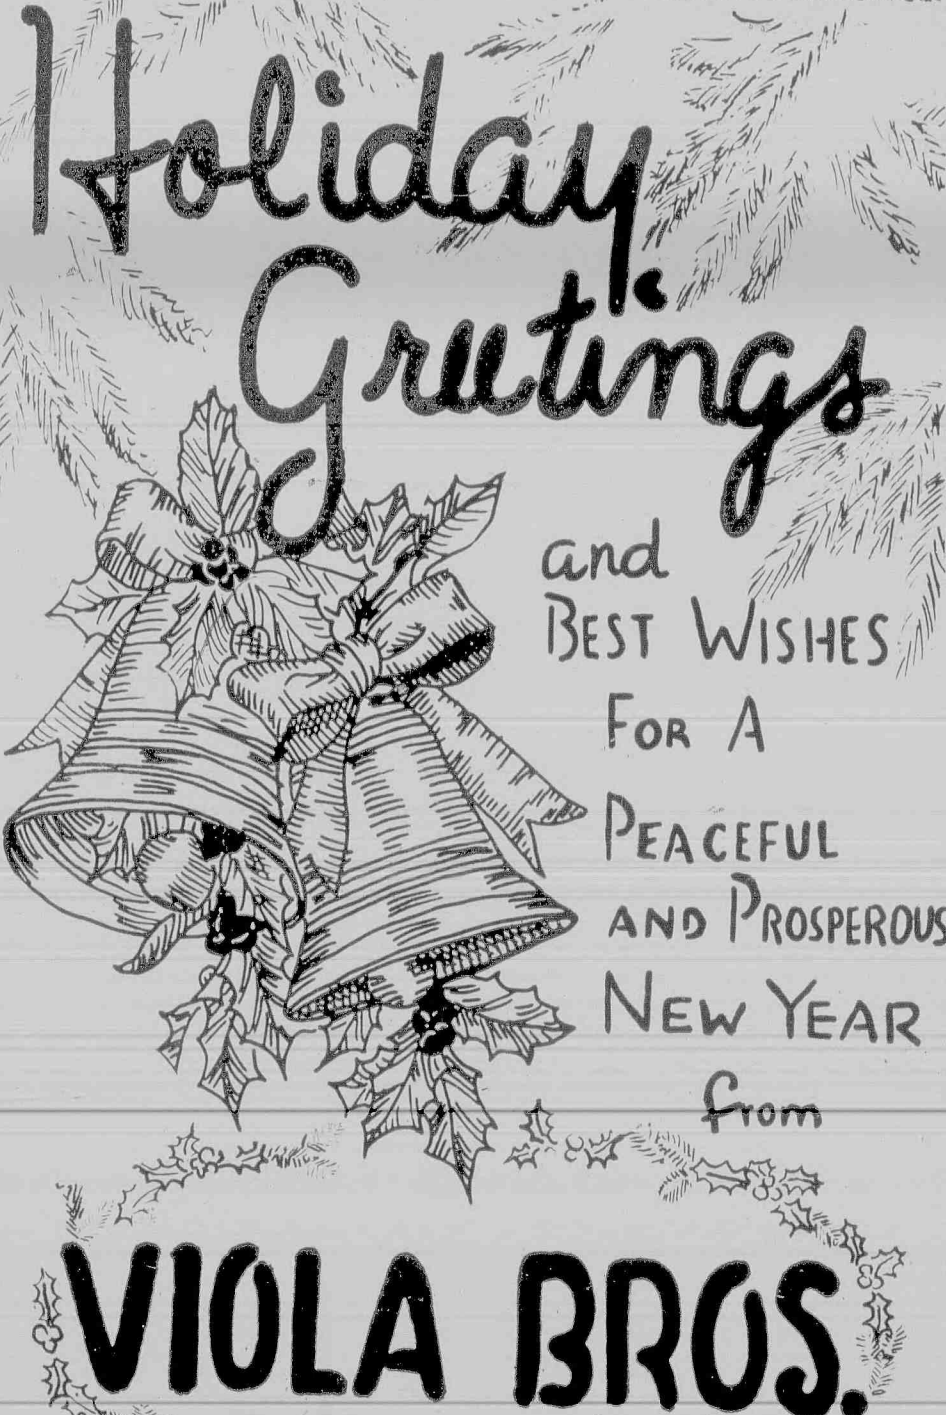 Holiday
Greetings
and
BEST WISHES
FOR A
PEACEFUL
AND PROSPEROUS
NEW YEAR
from
VIOLA BROS.